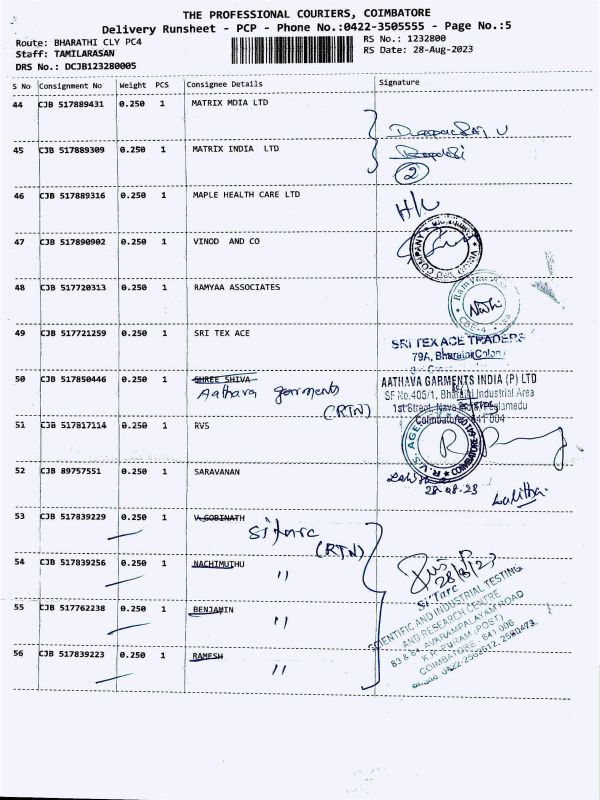 THE PROFESSIONAL COURIERS, COIMBATORE
Delivery Runsheet - PCP - Phone No.:0422-3505555 - Page No.:5
Route: BHARATHI CLY PC4 RS No.: 1232800
Staff: TAMILARASAN RS Date: 28-Aug-2023
DRS No.: DCJB123280005
S No Consignment No Weight PCS Consignee Details Signature
44 CJB 517889431 0.250 1 MATRIX MDIA LTD
45 CJB 517889309 0.250 1 MATRIX INDIA LTD
2
46 CJB 517889316 0.250 1 MAPLE HEALTH CARE LTD
H/U
47 CJB 517890902 0.250 1 VINOD AND CO
48 CJB 517720313 0.250 1 RAMYAA ASSOCIATES
49 CJB 517721259 0.250 1 SRI TEX ACE
SRI TEX ACE TRADERS
79A, Bharathi Colony
50 CJB 517850446 0.250 1 SHREE SHIVA
Aathava garments
(RTN)
AATHAVA GARMENTS INDIA (P) LTD
SF No.405/1, Bharathi Industrial Area
1st Street,
Coimbatore 641 004
51 CJB 517817114 0.250 1 RVS
52 CJB 89757551 0.250 1 SARAVANAN
28-08-23
Lalitha
53 CJB 517839229 0.250 1 V.GOBINATH
Sitarc
(RTN)
54 CJB 517839256 0.250 1 NACHIMUTHU
"
28/8/23
Si'Tarc
SCIENTIFIC AND INDUSTRIAL TESTING
AND RESEARCH CENTRE
83 & 84, AVARAMPALAYAM ROAD
K.R. PURAM (POST)
COIMBATORE - 641 006
Phone 0422-2562612, 2560473
55 CJB 517762238 0.250 1 BENJAMIN
"
56 CJB 517839223 0.250 1 RAMESH
"